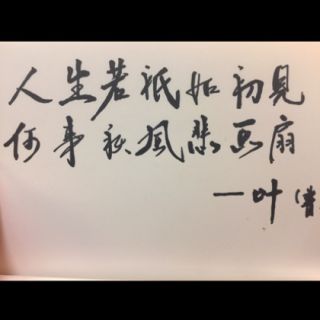 人生若祇如初見
何事秋風悲画扇
一叶